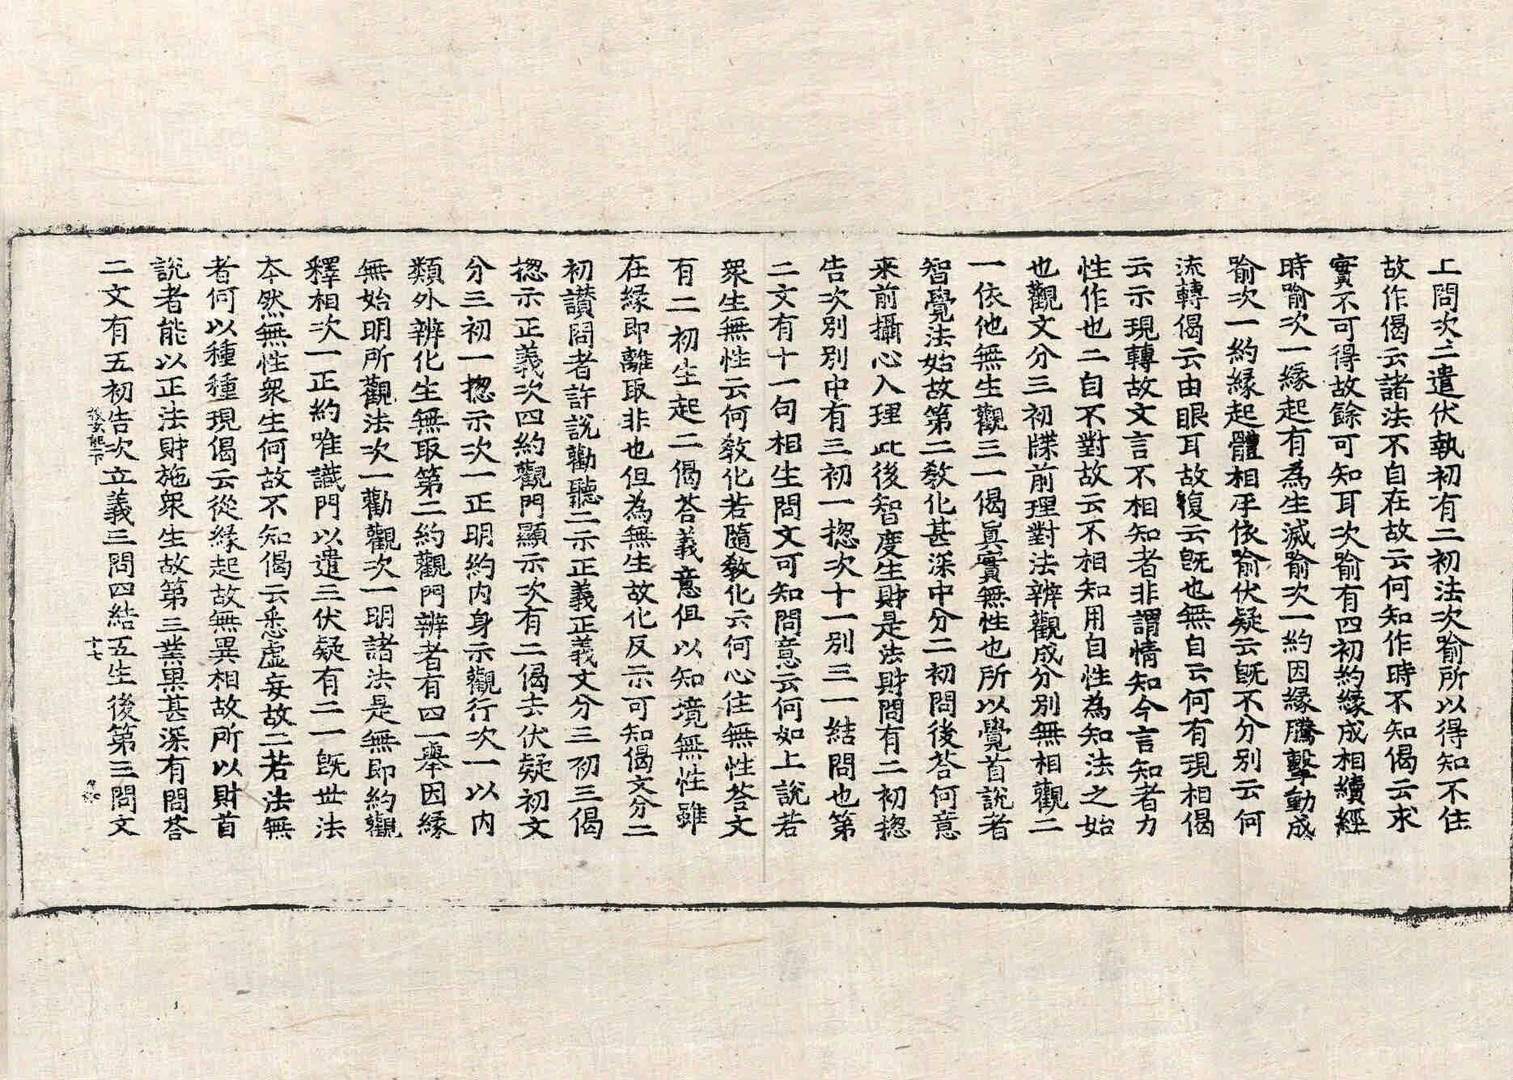 上問次二遣伏執初有二初法次喻所以得知不住
故作偈云諸法不自在故云何知作時不知偈云求
實不可得故餘可知耳次喻有四初約緣成相續經
時喻次一緣起有為生滅喻次一約因緣騰擊動成
喻次一約緣起體相乎依喻伏疑云既不分別云何
流轉偈云由眼耳故復云既也無自云何有現相偈
云示現轉故文言不相知者非謂情知今言知者力
性作也二自不對故云不相知用自性為知法之始
也觀文分三初牒前理對法辨觀成分別無相觀二
一依他無生觀三一偈真實無性也所以覺首說者
智覺法始故第二教化甚深中分二初問後荅何意
來前攝心入理此後智度生財是法財問有二初揔
告次別別中有三初一揔次十一別三一結問也第
二文有十一句相生問文可知問意云何如上說若
衆生無性云何教化若隨教化云何心住無性荅文
有二初生起二偈荅義意但以知境無性雖
在緣即離取非也但為無生故化反示可知偈文分二
初讚問者許說勸聽二示正義正義文分三初三偈
揔示正義次四約觀門顯示次有二偈去伏疑初文
分三初一揔示次一正明約內身示觀行次一以內
類外辨化生無取第二約觀門辨者有四一舉因緣
無始明所觀法次一勸觀觀次一明諸法是無即約觀
釋相次一正約唯識門以遣三伏疑有二一既世法
夲然無性衆生何故不知偈云悉虛妄故二若法無
者何以種種現偈云從緣起故無異相故所以財首
說者能以正法財施衆生故第三業果甚深有問荅
二文有五初告次立義三問四結五生後第三問文
十七